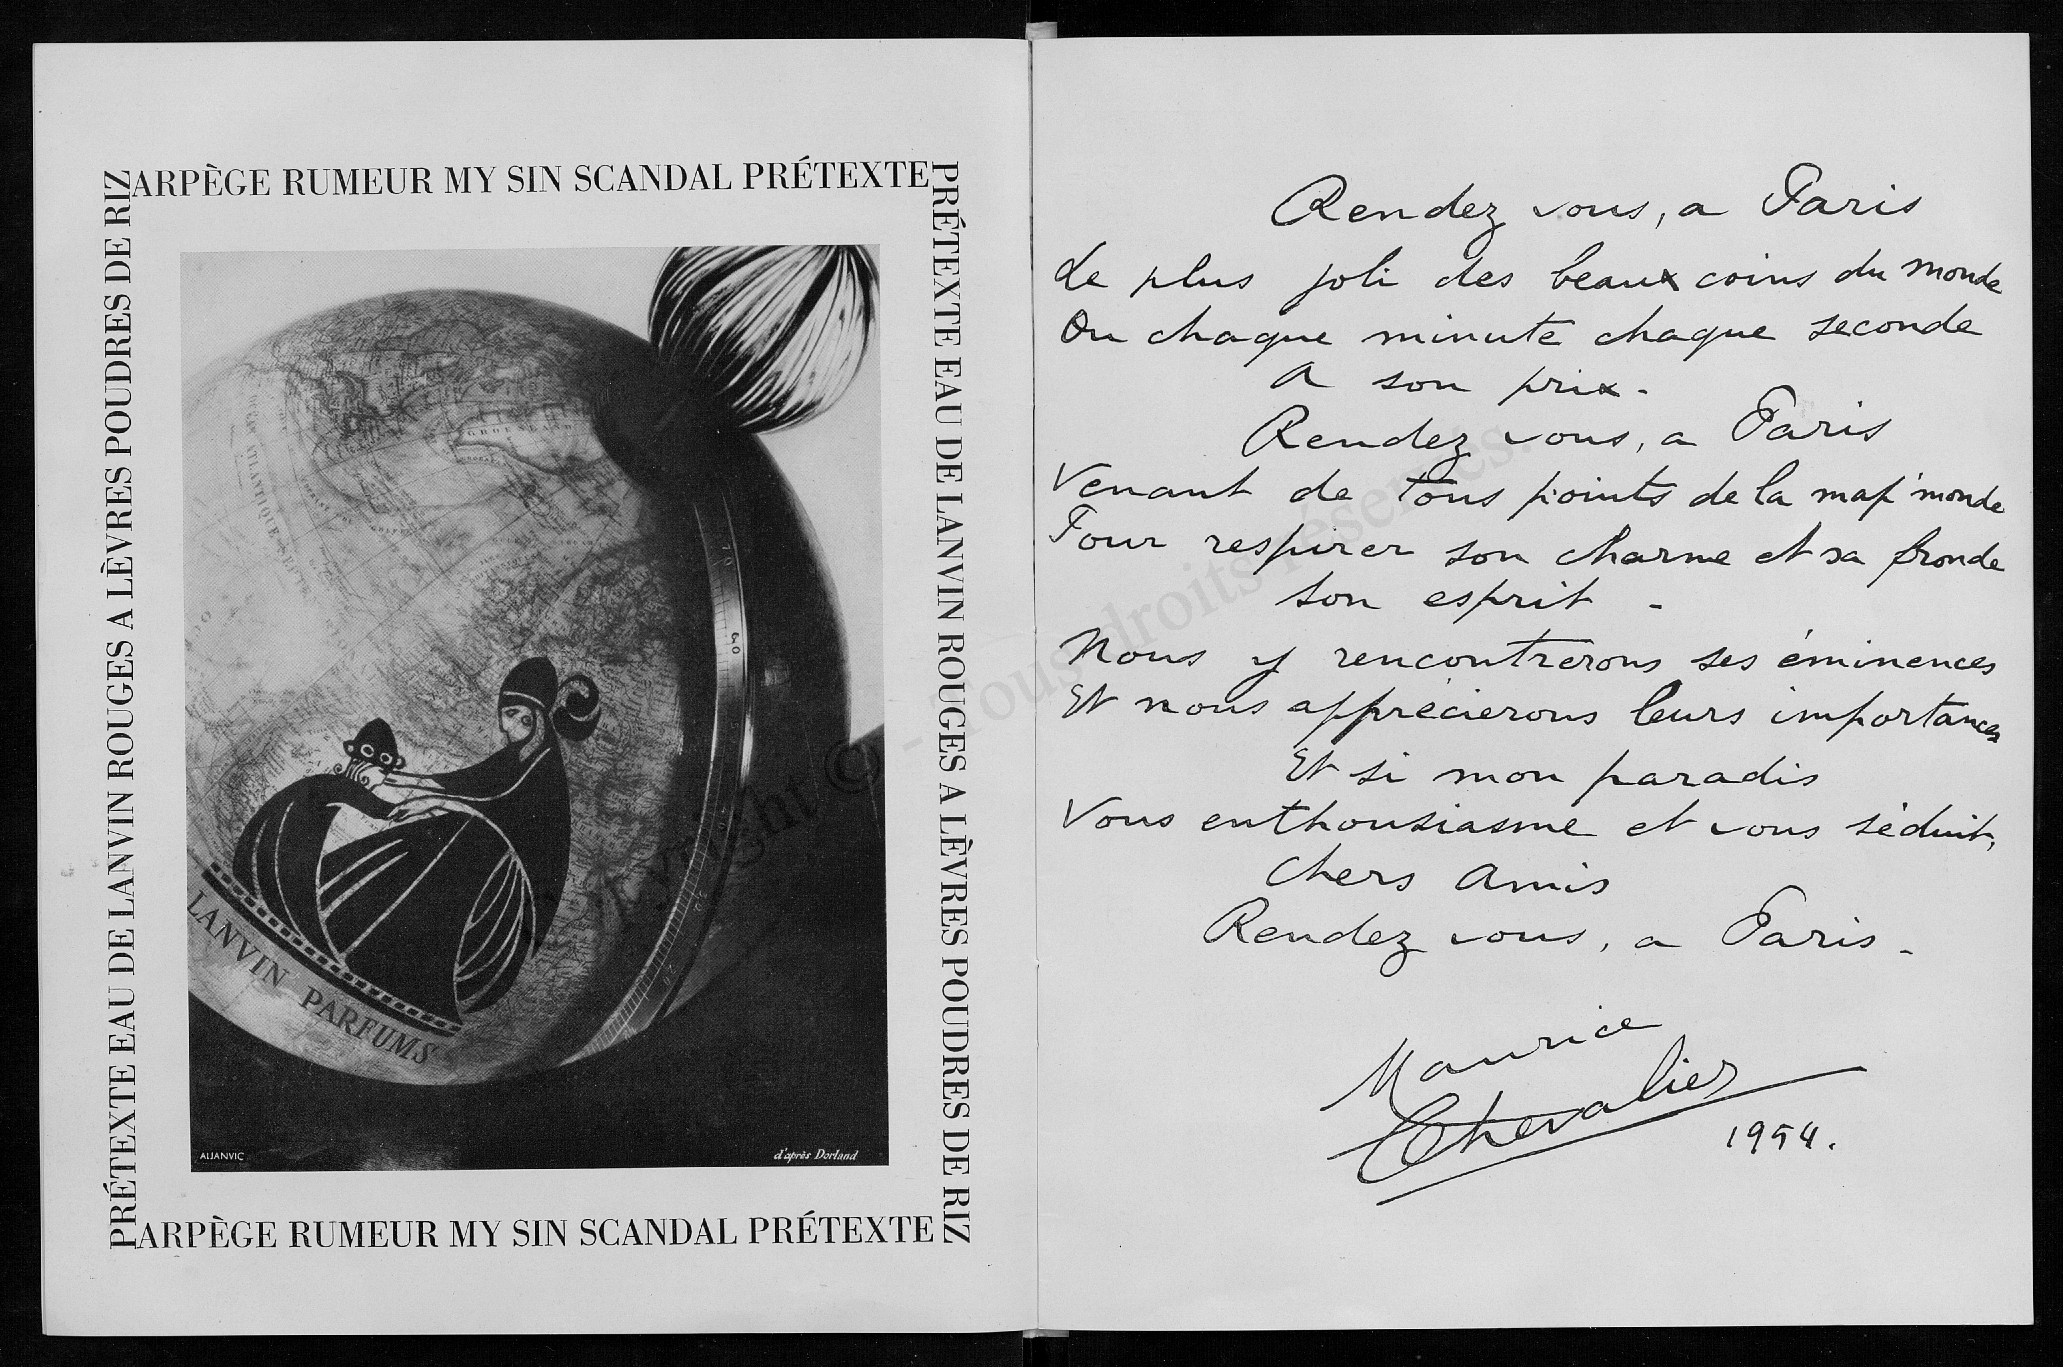 ARPÈGE RUMEUR MY SIN SCANDAL PRÉTEXTE
PRÉTEXTE EAU DE LANVIN ROUGES A LÈVRES POUDRES DE RIZ
PRÉTEXTE EAU DE LANVIN ROUGES A LÈVRES POUDRES DE RIZ
70
60
LANVIN PARFUMS
ALJANVIC
d'après Dorland
ARPÈGE RUMEUR MY SIN SCANDAL PRÉTEXTE
Rendez vous, a Paris
Le plus joli des beaux coins du monde
Ou chaque minute chaque seconde
A son prix.
Rendez vous, a Paris
Venant de tous points de la map'monde
Pour respirer son charme et sa fronde
Son esprit -
Nous y rencontrerons ses éminences
Et nous apprécierons leurs importances
Et si mon paradis
Vous enthousiasme et vous séduit,
Chers Amis
Rendez vous, a Paris -
Maurice
Chevalier
1954.
Copyright © - Tous droits réservés.